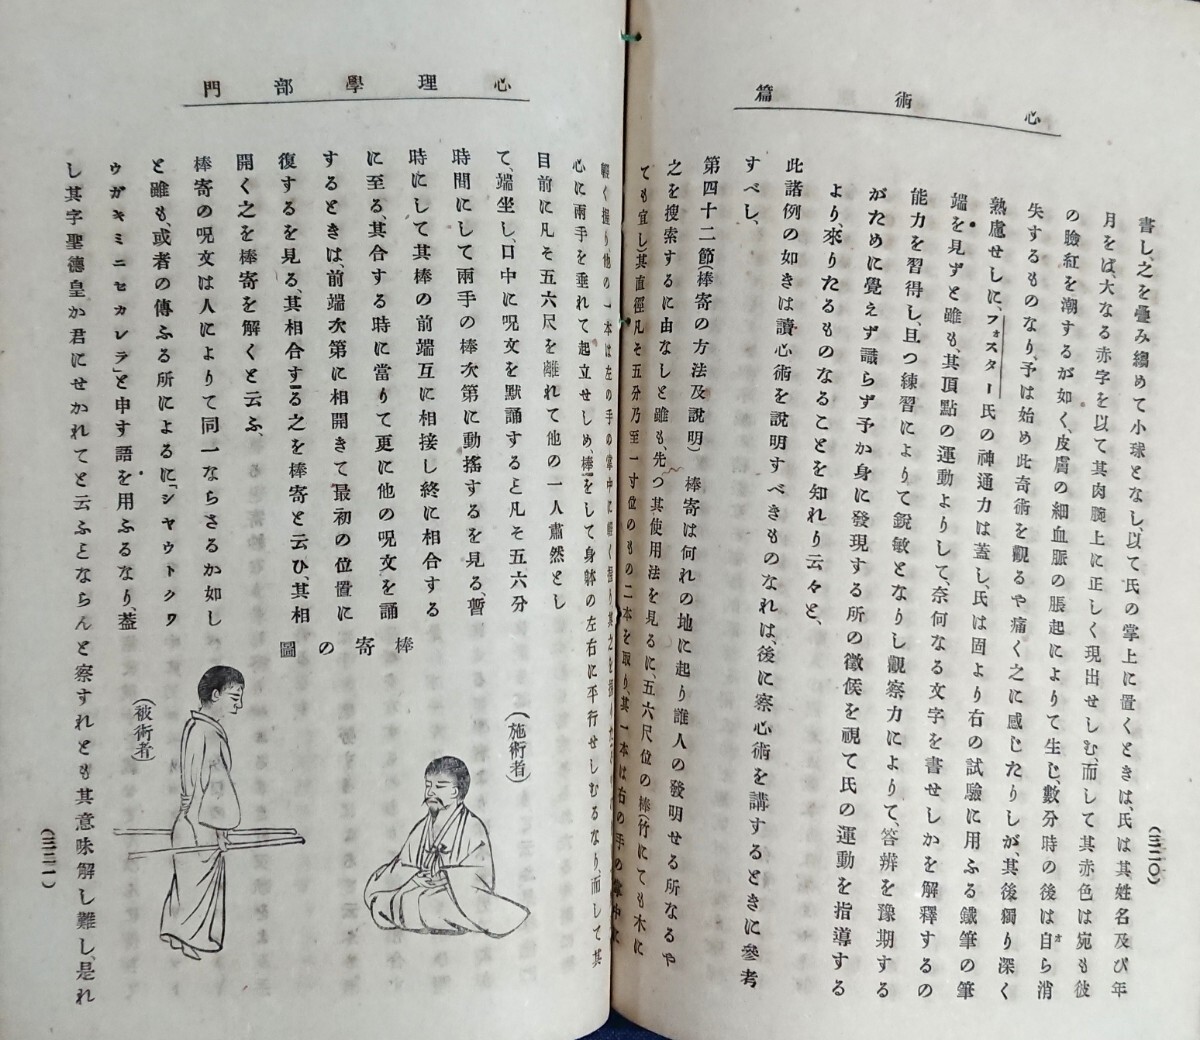 心術篇
書し、之を疊み縮めて小球となし、以て氏の掌上に置くときは、氏は其姓名及び年
月をば、大なる赤字を以て其肉腕上に正しく現出せしむ、而して其赤色は宛も彼
の驗紅を潮するが如く、皮膚の細血脈の脹起によりて生じ、數分時の後は自ら消
失するものなり、予は始め此奇術を觀るや痛く之に感じたりしが、其後獨り深く
熟慮せしに、フォスター氏の神通力は蓋し、氏は固より右の試驗に用ふる鐵筆の筆
端を見ずと雖も、其頂點の運動よりして、奈何なる文字を書せしかを解釋するの
能力を習得し、且つ練習によりて鋭敏となりし觀察力によりて、答辨を豫期する
がために覺えず識らず予か身に發現する所の徴候を視て氏の運動を指導する
より、來りたるものなることを知れり云々と、
此諸例の如きは讀心術を説明すべきものなれは、後に察心術を講するときに參考
すべし、
第四十二節(棒寄の方法及説明) 棒寄は何れの地に起り誰人の發明せる所なるや
之を搜索するに由なしと雖も、先つ其使用法を見るに、五六尺位の棒(竹にても木に
ても宜し)其直徑凡そ五分乃至一寸位のもの二本を取り、其一本は右の手の掌中に
(三二〇)
心理學部門
輕く握り他の一本は左の手の掌中に輕く握り其之を握
心に兩手を垂れて起立せしめ、棒をして身躰の左右に平行せしむるなり、而して其
目前に凡そ五六尺を離れて他の一人肅然とし
て、端坐し、口中に呪文を默誦すると凡そ五六分
時間にして兩手の棒次第に動搖するを見る、暫
時にして其棒の前端互に相接し終に相合する
に至る、其合する時に當りて更に他の呪文を誦
するときは、前端次第に相開きて最初の位置に
復するを見る、其相合する之を棒寄と云ひ、其相
開く之を棒寄を解くと云ふ、
棒寄の呪文は人によりて同一ならさるか如し
と雖も、或者の傳ふる所によるに、「シヤウトクワ
ウガキミニセカレテ」と申す語を用ふるなり、蓋
し其字聖德皇か君にせかれてと云ふとならんと察すれとも其意味解し難し、是れ
棒寄の圖
(施術者)
(被術者)
(三二一)